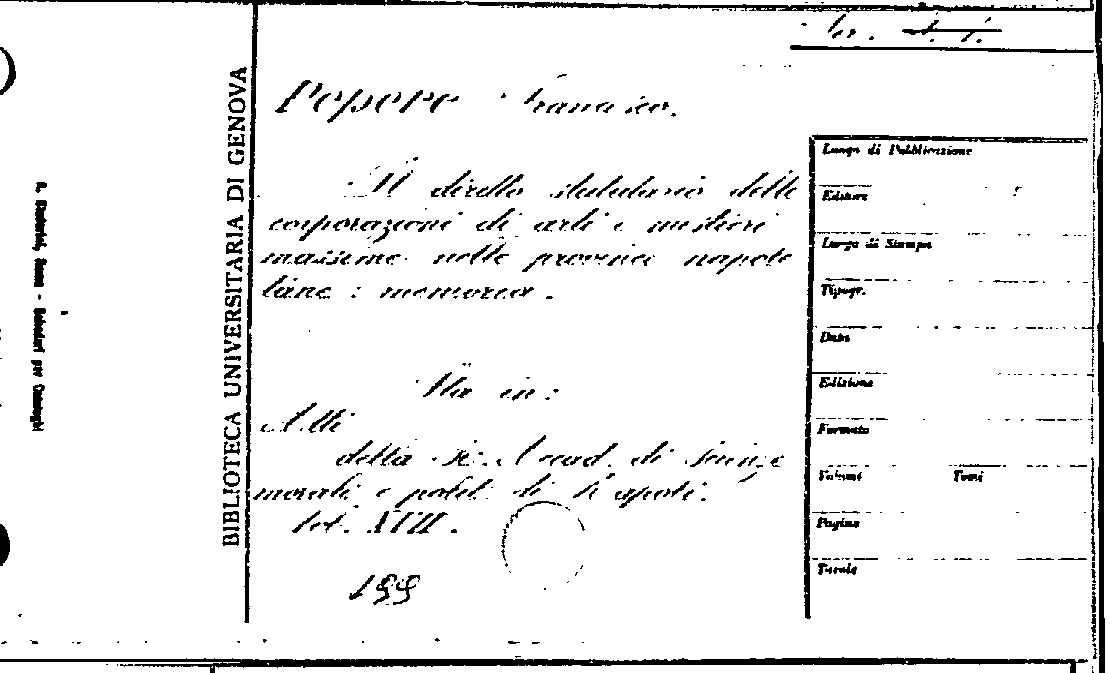 Ser. S. I.
Pepere Francesco.
Il diretto statutario delle
corporazioni di arti e mestieri
massime nelle provincie napole
tane : memoria.
Sta in:
Atti
della R. Accad. di Scienze
morali e polit. di Napoli.
Vol. XVII.
199
BIBLIOTECA UNIVERSITARIA DI GENOVA
Luogo di Pubblicazione
Editore
Luogo di Stampa
Tipogr.
Data
Edizione
Formato
Volumi Tomi
Pagine
Tavole
Roma - Schedari per Cataloghi